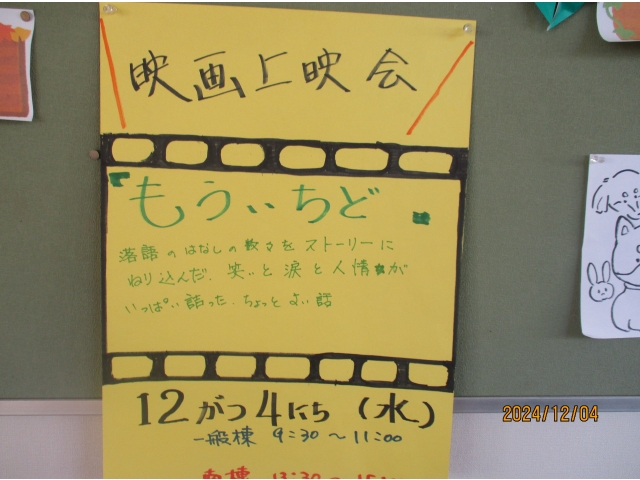 映画上映会
『もういちど』
落語のはなしの数々をストーリーに
ねり込んだ、笑いと涙と人情が
いっぱい詰った、ちょっとよい話
12がつ4にち(水)
一般棟 9:30～11:00
棟 13:30～
2024/12/04